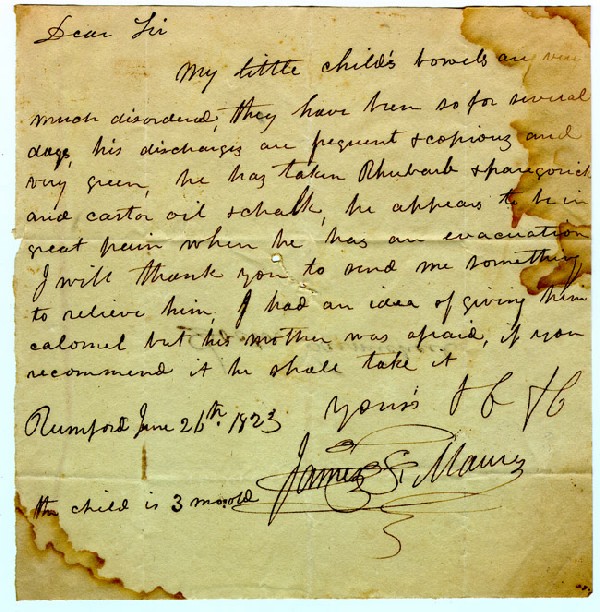 Dear Sir
My little child's bowels are very
much disordered, they have been so for several
days, his discharges are frequent & copious and
very green, he has taken Rhubarb & paregorick
and castor oil & chalk, he appears to be in
great pain when he has an evacuation
I will thank you to send me something
to relieve him, I had an idea of giving him
calomel but his mother was afraid, if you
recommend it he shall take it
Yours &C &C
Rumford June 26th. 1823
James S. Maury
the child is 3 mo: old